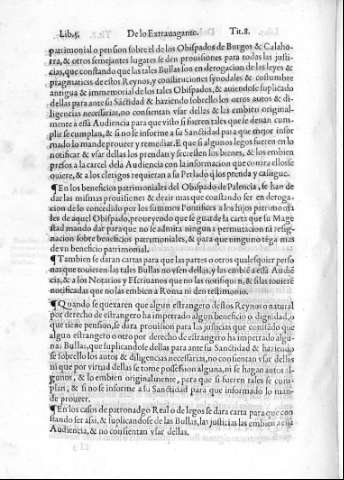 Lib.5. De lo Extrauagante. Tit.8.
patrimonial o pension sobre el de los Obispados de Burgos & Calaho-
rra, & otros semejantes lugares se den prouisiones para todas las justi-
cias, que constando que las tales Bullas son en derogacion de las leyes &
pragmaticas de estos Reynos, y constituciones synodales & costumbre
antigua & immemorial de los tales Obispados, & auiendose suplicado
dellas para ante su Sāctidad & haziendo sobrello los otros autos & di-
ligencias necessarias, no consientan vsar dellas & las embien original-
mente a esta Audiencia para que visto si fueren tales que se deuan cum-
plir se cumplan, & si no se informe a su Sanctidad para que mejor infor
mado lo mande proueer y remediar. E que si algunos legos fueren en lo
notificar & vsar dellas los prendan y secresten los bienes, & los embien
presos a la carcel dela Audiencia con la informacion que contra ellos se
ouiere, & a los clerigos requieran a su Perlado q̄ los prenda y castigue.
¶ En los beneficios patrimoniales del Obispado de Palencia, se han de
dar las mismas prouisiones & dezir mas que constando ser en deroga-
cion de lo concedido por los summos Pontifices a los hijos patrimonia
les de aquel Obispado, proueyendo que se guarde la carta que su Mage
stad mando dar para que no se admita ninguna permutacion ni resig-
nacion sobre beneficios patrimoniales, & para que ninguno tēga mas
de vn beneficio patrimonial.
¶ Tambien se daran cartas para que las partes o otros qualesquier perso
nas que touieren las tales Bullas no vsen dellas, y las embiē a esta Audiē
cia, & a los Notarios y Escriuanos que no las notifiquen, & si las touierē
notificadas que no las embien a Roma ni den testimonio.
¶ Quando se quexaren que algun estrangero destos Reynos o natural
por derecho de estrangero ha impetrado algun beneficio o dignidad, o
que tiene pension, se dara prouision para las justicias que constando que
algun estrangero o otro por derecho de estrangero ha impetrado algu-
nas Bullas, que suplicandose dellas para ante su Sanctidad & haziendo
se sobrello los autos & diligencias necessarias, no consientan vsar dellas
ni que por virtud dellas se tome possession alguna, ni se hagan autos al-
gunos, & lo embien originalmente, para que si fueren tales se cum-
plan, & si no se informe a su Sanctidad para que informado lo man-
de proueer.
¶ En los casos de patronadgo Real o de legos se dara carta para que con
stando ser assi, & suplicandose de las Bullas, las justicias las embien a esta
Audiencia, & no consientan vsar dellas.